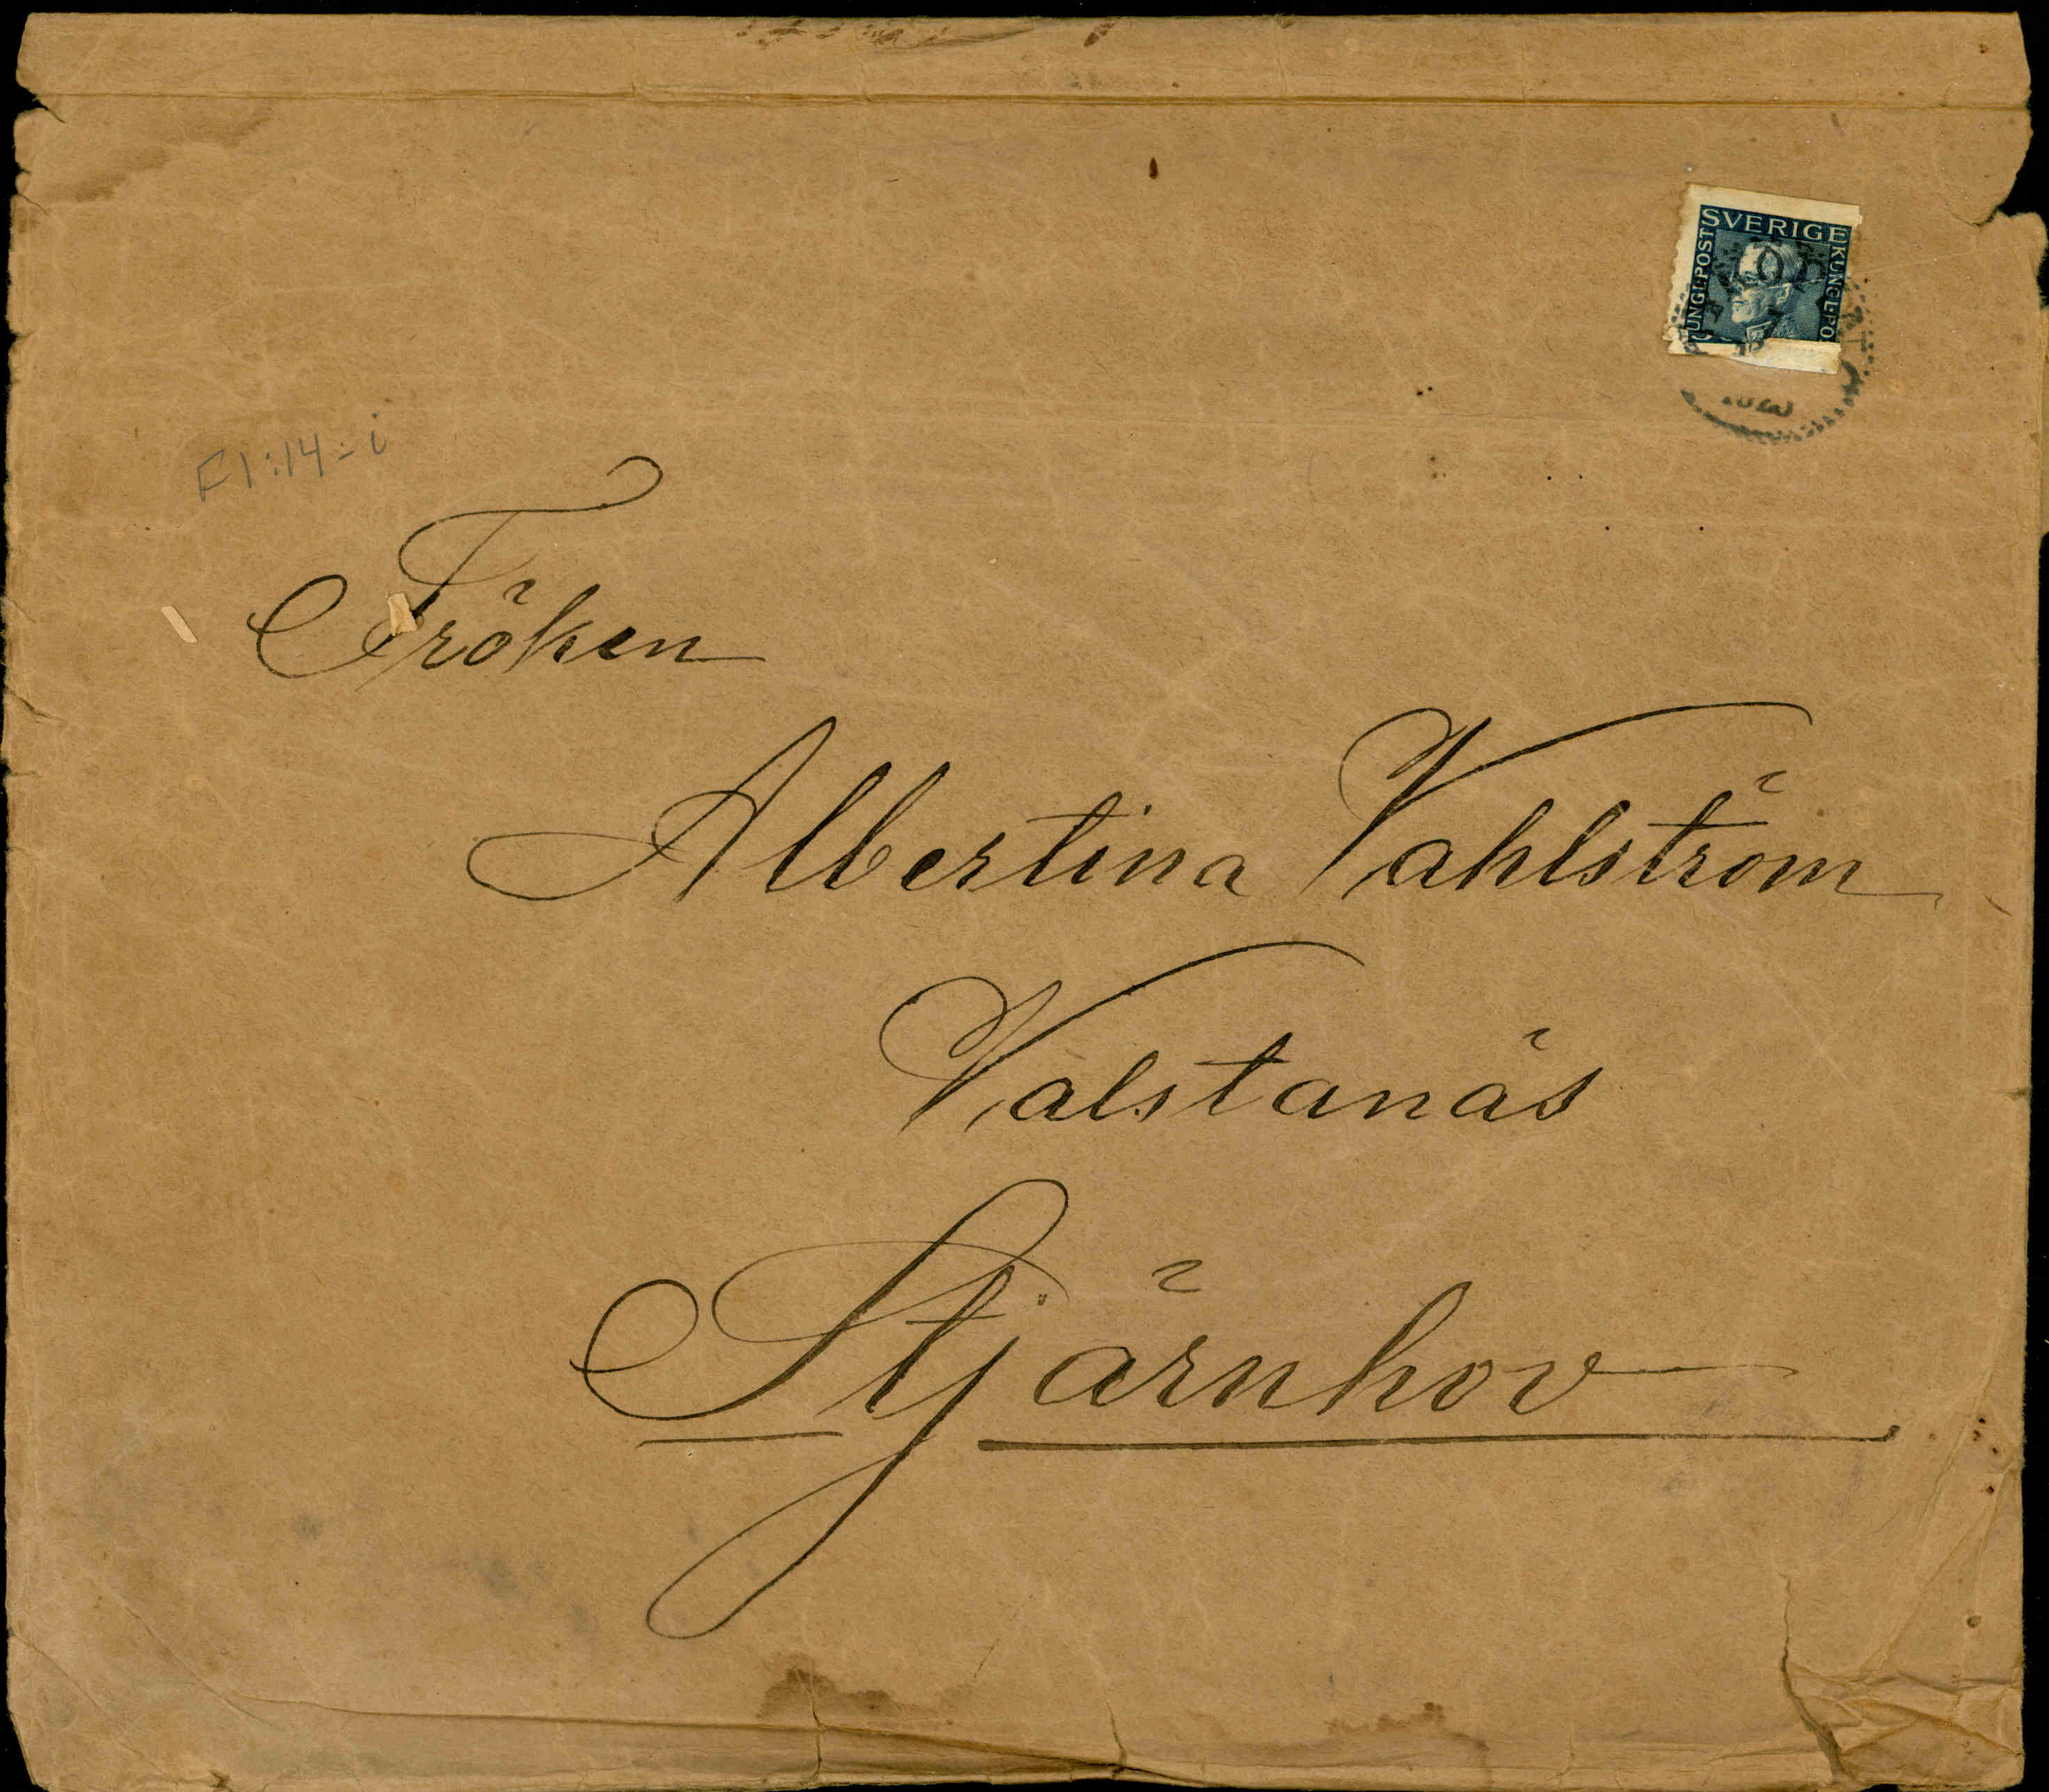 SVERIGE
KUNGL·POST
KUNGL·PO
F1:14-i
Fröken
Albertina Vahlström
Valstanäs
Stjärnhov